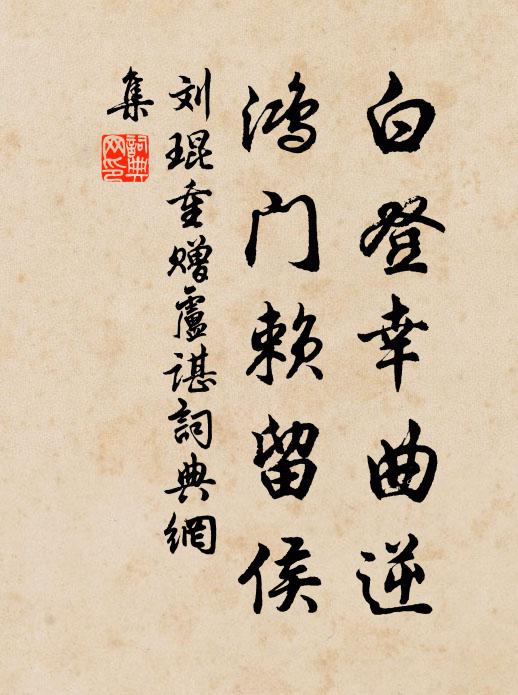 白登幸曲逆
鸿门赖留侯
刘琨重赠盧谌詞典網
集
詞典網印